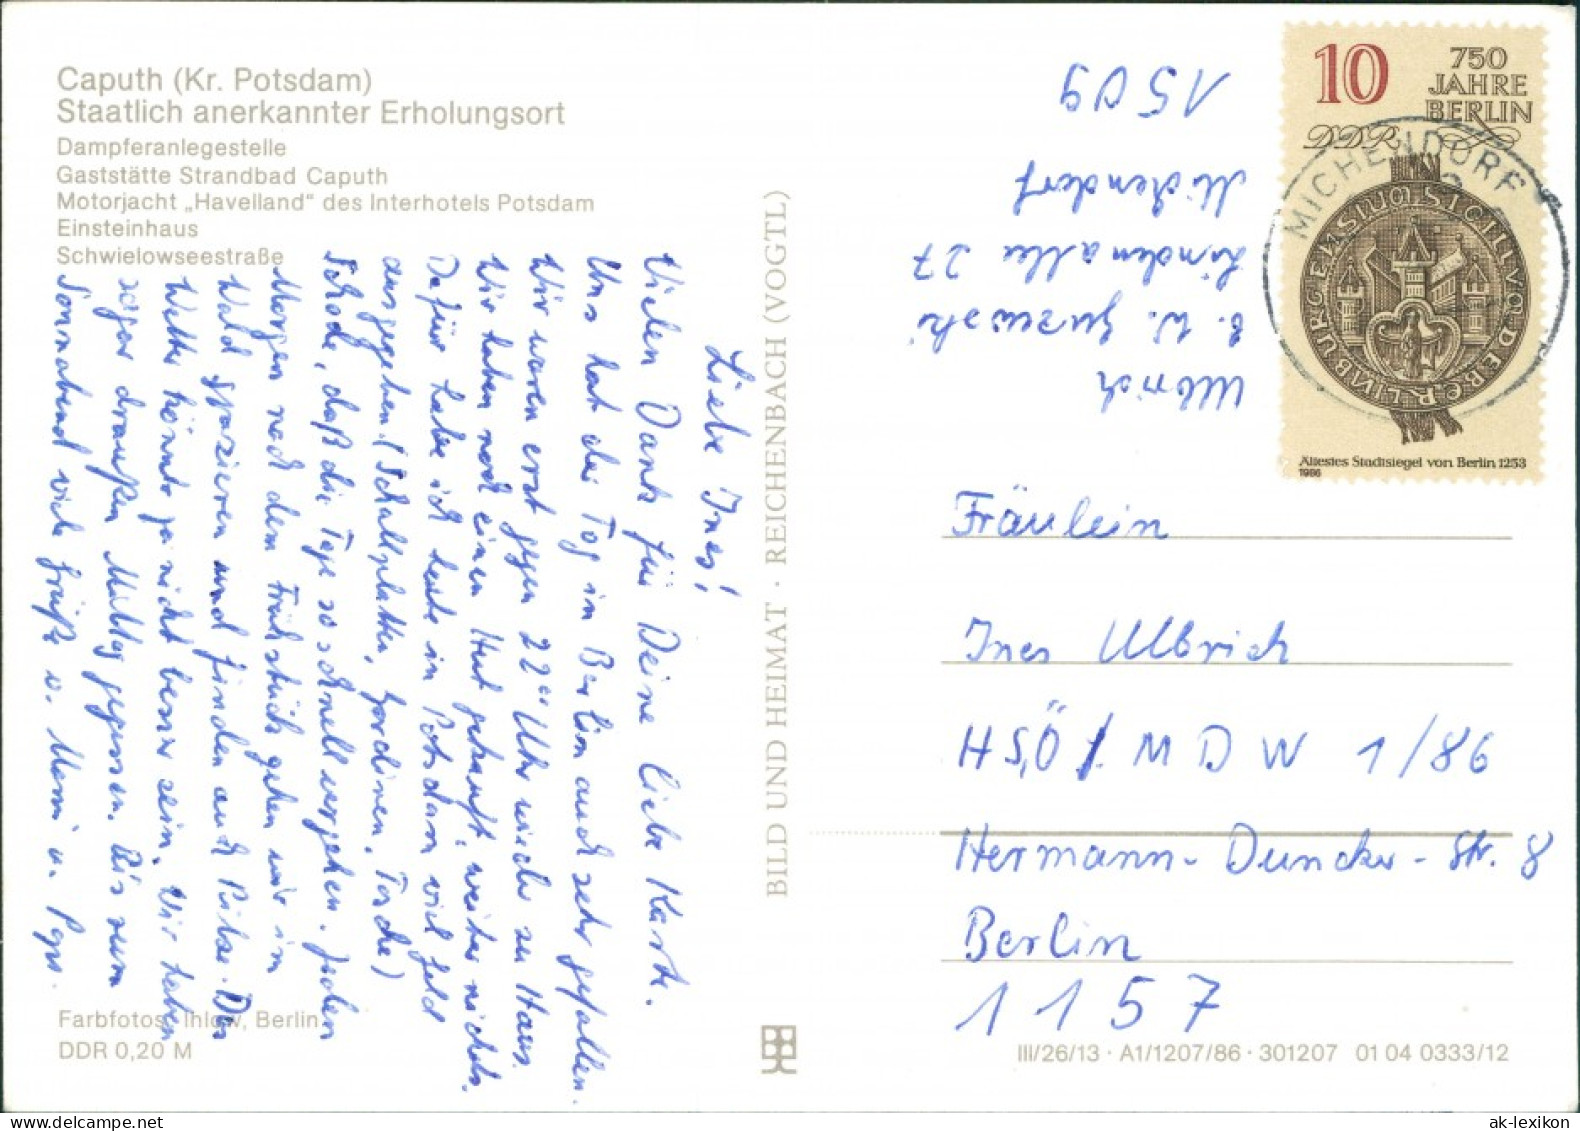 Caputh (Kr. Potsdam)
Staatlich anerkannter Erholungsort
Dampferanlegestelle
Gaststätte Strandbad Caputh
Motorjacht „Havelland" des Interhotels Potsdam
Einsteinhaus
Schwielowseestraße
Liebe Ines!
Vielen Dank für Deine liebe Karte.
Uns hat der Tag in Berlin auch sehr gefallen.
Wir waren erst gegen 22°° Uhr wieder zu Haus.
Wir haben noch einen Hut gekauft, weiter nichts.
Dafür habe ich heute in Potsdam viel Geld
ausgegeben. (Schallplatten, Gardinen, Tasche)
Schade, daß die Tage so schnell vergehen. Jeden
Morgen nach dem Frühstück gehen wir im
Wald spazieren und finden auch Pilze. Das
Wetter könnte ja nicht besser sein. Wir haben
sogar draußen Mittag gegessen. Bis zum
Sonnabend viele Grüße v. Mami u. Paps.
Farbfotos: Ihlow, Berlin
DDR 0,20 M
BILD UND HEIMAT · REICHENBACH (VOGTL)
Ulbrich
b. W.
Lindenallee 27
Michendorf
1509
10
750
JAHRE
BERLIN
DDR
MICHENDORF
Ältestes Stadtsiegel von Berlin 1253
1986
Fräulein
Ines Ulbrich
HSÖ / MDW 1/86
Hermann-Duncker-Str. 8
Berlin
1157
III/26/13 · A1/1207/86 · 301207 01 04 0333/12
ak-lexikon